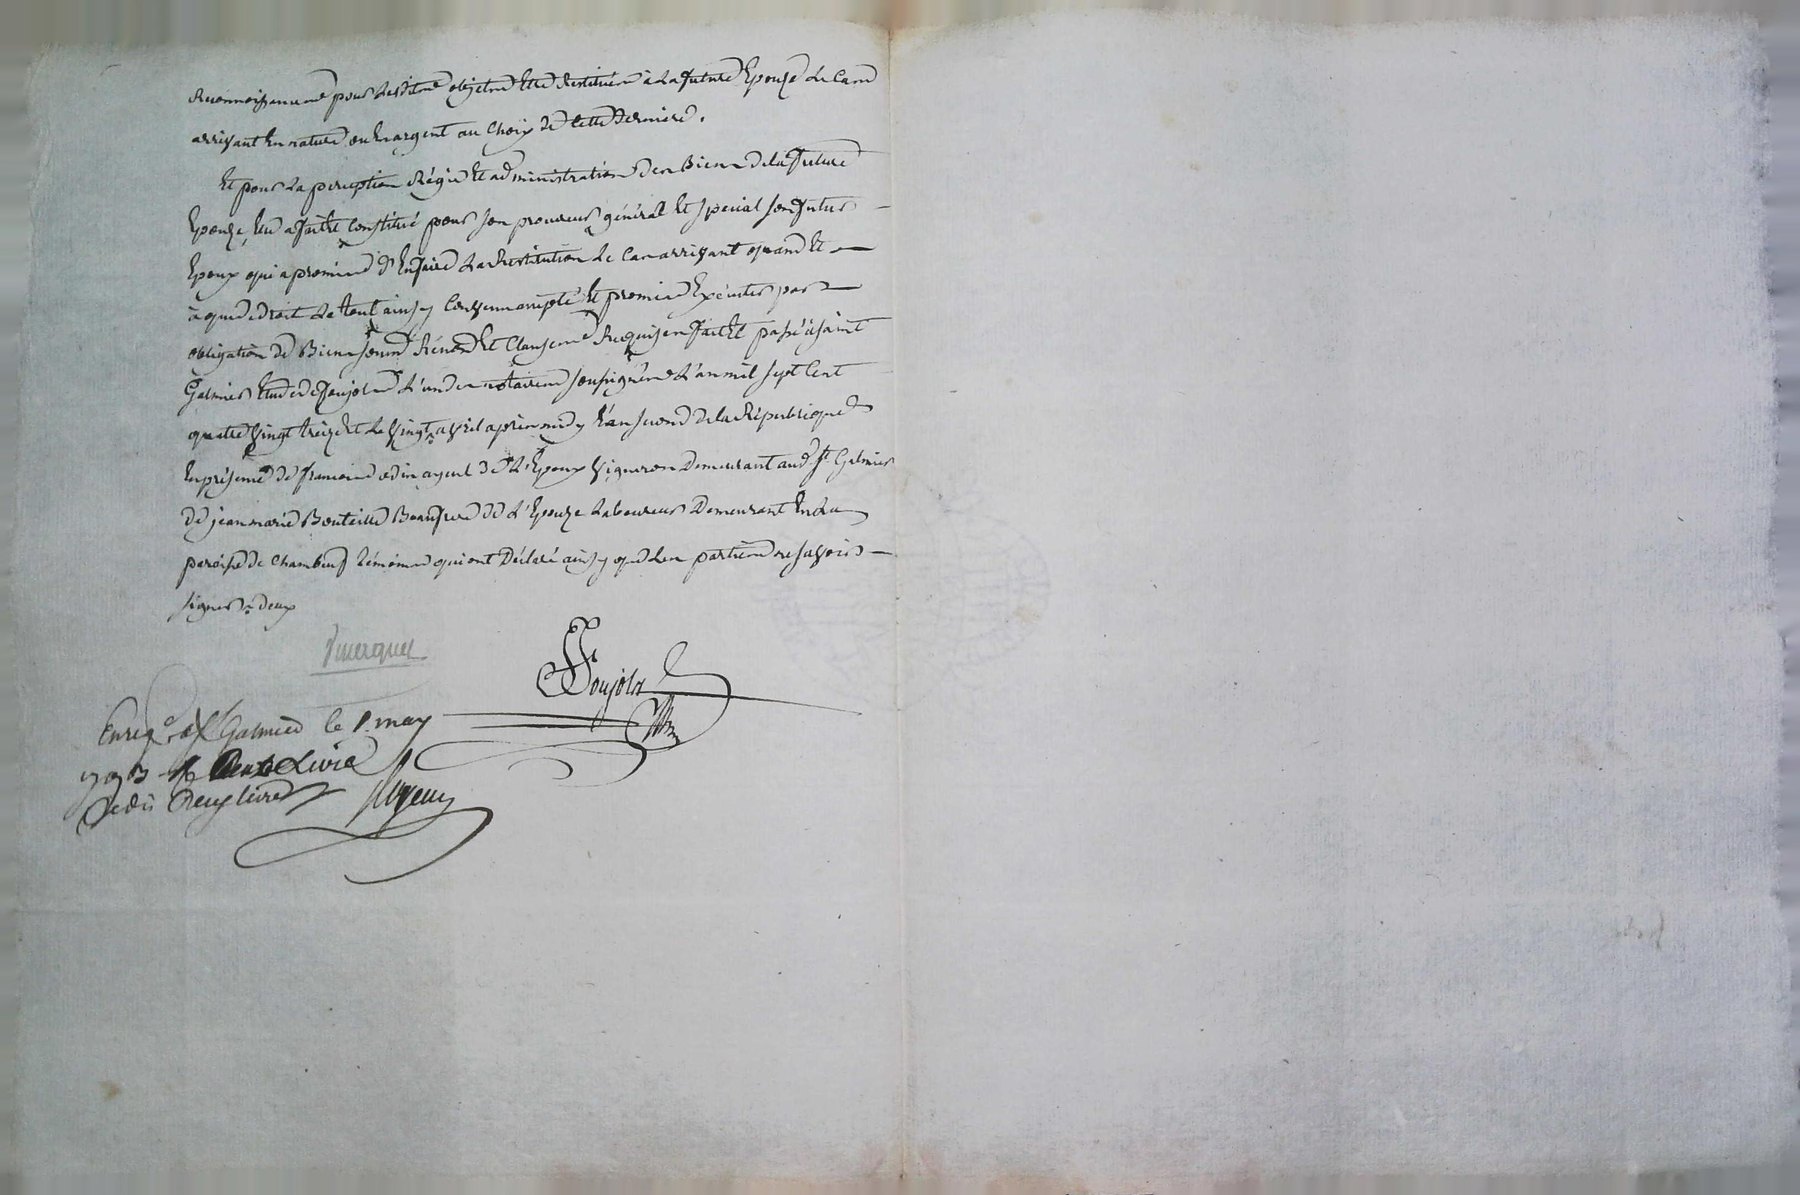 Reconnoissance pour lesdits objets Etre Restitués à la future Epouze le Cas
arrivant En nature ou En argent au Choix de Cette Derniere.
Et pour la perception Régie Et administration des Biens de la future
Epouze, Elle a fait Et Constitué pour son procureur général Et special son futur
Epoux qui a promis d'En faire la Restitution le Cas arrivant quand Et
à qui de droit le tout ainsy Convenu accepté Et promis Exécuter par
obligation de Biens soumis Renon Et Clauses Requises fait Et passé à saint
Galmier Etude de Poujols L'un des notaires soussignés L'an mil sept Cent
quatre Vingt treize Et le Vingt avril après midy L'an second de la République
En présence de francois odin ayeul de L'Epoux Vigneron Demeurant aud. St. Galmier
de jean marie Bouteille Beaufrere de L'Epouze Laboureur Demeurant En la
paroisse de Chambeuf témoins qui ont Déclaré ainsy que les parties ne savoir
signer
Poujols
Enreg.é à St Galmier le 1. may
1793
deux livres